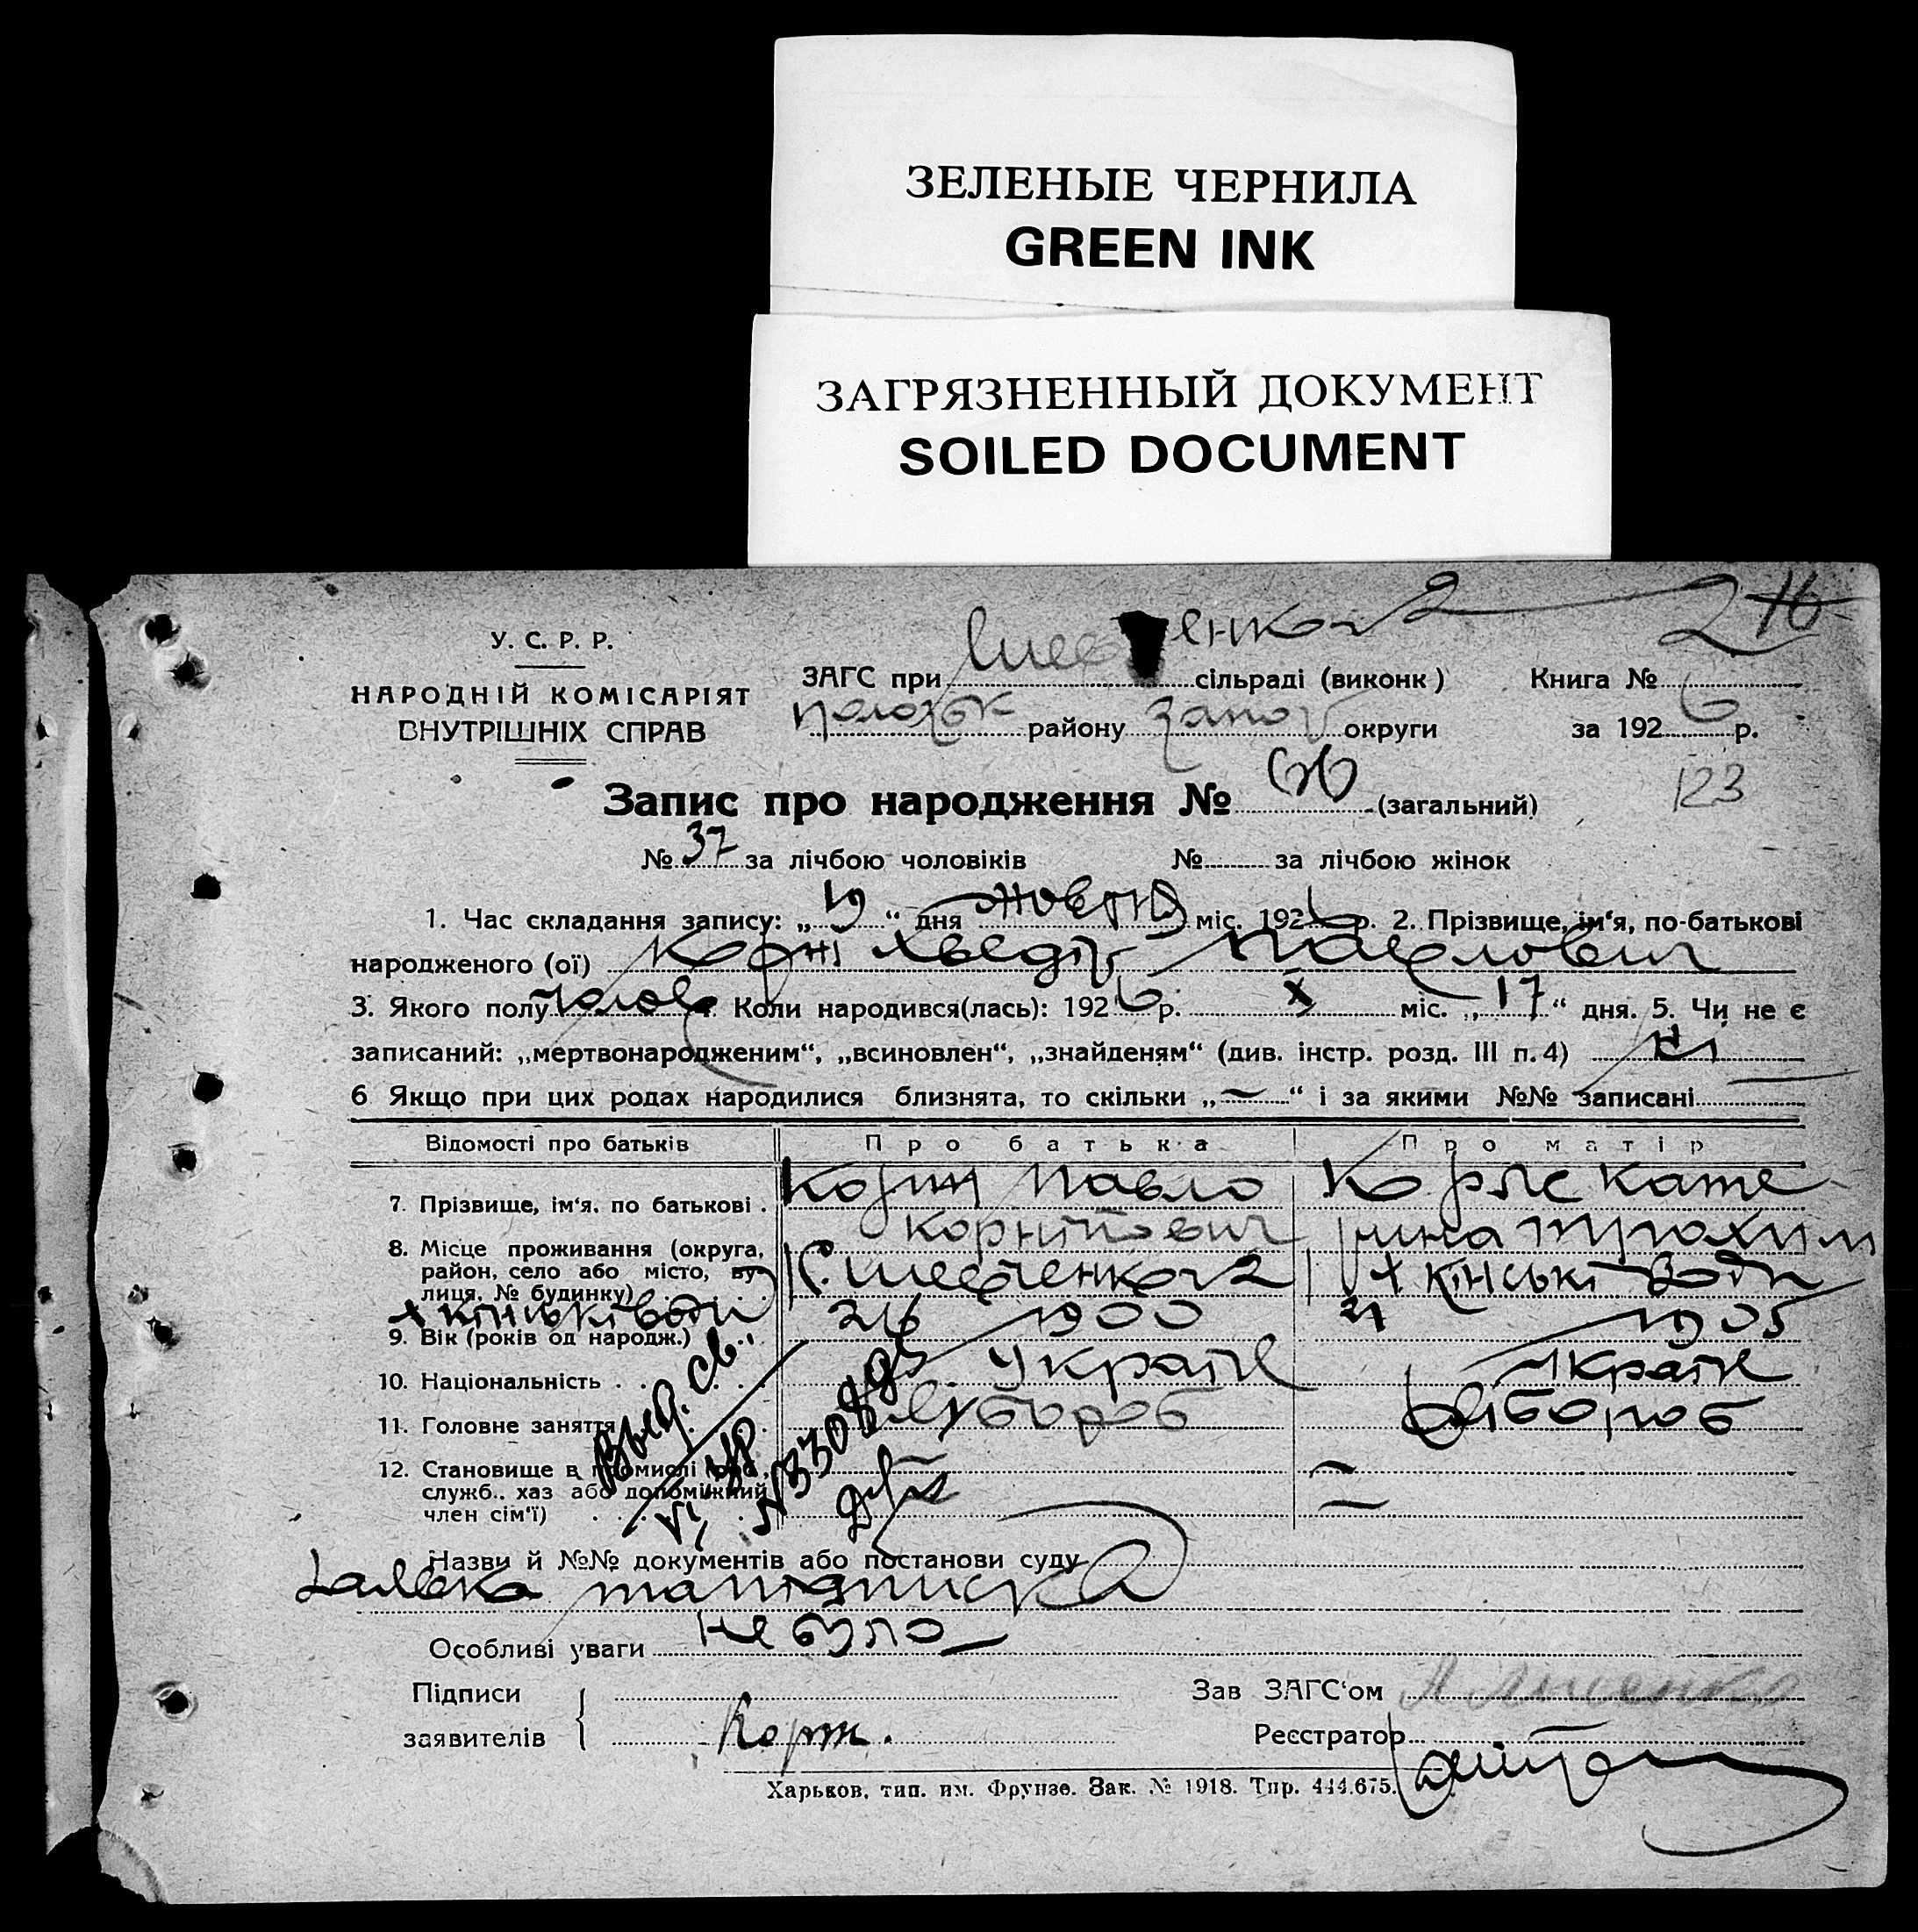 ЗЕЛЕНЫЕ ЧЕРНИЛА
GREEN INK
ЗАГРЯЗНЕННЫЙ ДОКУМЕНТ
SOILED DOCUMENT
У. С. Р. Р.
НАРОДНІЙ КОМІСАРІЯТ
ВНУТРІШНІХ СПРАВ
ЗАГС при сільраді (виконк) Книга №
району округи за 1926 р.
123
Запис про народження № 66 (загальний)
№ 37 за лічбою чоловіків № за лічбою жінок
1. Час складання запису: „19“ дня жовтня міс. 1926 р. 2. Прізвище, ім‘я, по-батькові
народженого (ої) Корж Хведір Павлович
3. Якого полу чолов Коли народився(лась): 1926 р. X міс. „17“ дня. 5. Чи не є
записаний: „мертвонародженим“, „всиновлен“, „знайденям“ (див. інстр. розд. III п. 4) ні
6 Якщо при цих родах народилися близнята, то скільки „—“ і за якими №№ записані
Відомості про батьків Про батька Про матір
7. Прізвище, ім‘я, по батькові . Корж Павло Корж Кате
рина Трохим
8. Місце проживання (округа, район, село або місто, ву-
лиця, № будинку) х Кінські Води
х Кінські Води
9. Вік (років од народж.) 26 1900 21 1905
10. Національність . Україн Україн
11. Головне заняття хлібороб хлібороб
12. Становище в промислі (роб.,
служб., хаз або допоміжний — —
член сім‘ї)
Выд. св.
Назви й №№ документів або постанови суду
Заявка та підписка
Особливі уваги не було
Підписи Зав ЗАГС‘ом
заявителів Корж. Реєстратор
Харьков, тип. им. Фрунзе. Зак. № 1918. Тир. 444.675.